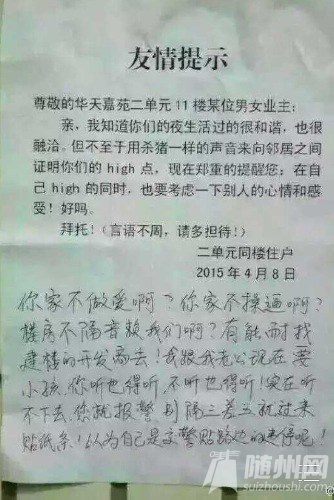 友情提示
尊敬的华天嘉苑二单元11楼某位男女业主：
亲，我知道你们的夜生活过的很和谐，也很
融洽。但不至于用杀猪一样的声音来向邻居之间
证明你们的high点，现在郑重的提醒您：在自
己high的同时，也要考虑一下别人的心情和感
受！好吗。
拜托！（言语不周，请多担待！）
二单元同楼住户
2015年4月8日
你家不做爱啊？你家不操逼啊？
楼房不隔音赖我们啊？有能耐找
建楼的开发商去！我跟我老公现在要
小孩，你听也得听，不听也得听！实在听
不下去，您就报警 别隔三差五就过来
贴纸条！以为自己是交警贴路边的違停呢！
随州网
suizhoushi.com